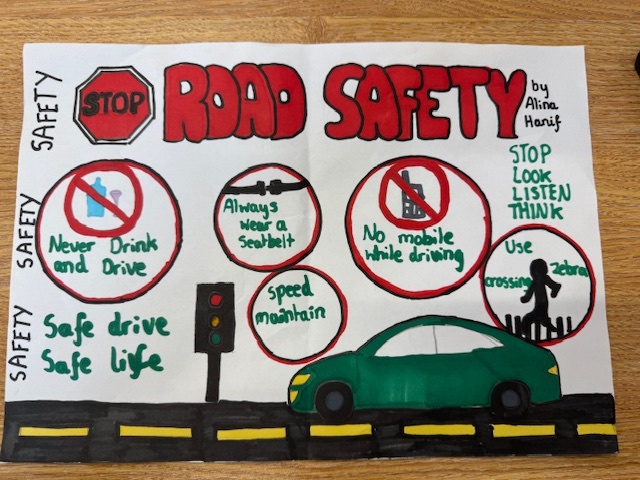 STOP
ROAD SAFETY
by
Alina
Hanif
SAFETY
SAFETY
SAFETY
STOP
LOOK
LISTEN
THINK
Never Drink
and Drive
Always
wear a
Seatbelt
No mobile
while driving
Use
zebra
crossing
speed
maintain
Safe drive
Safe life